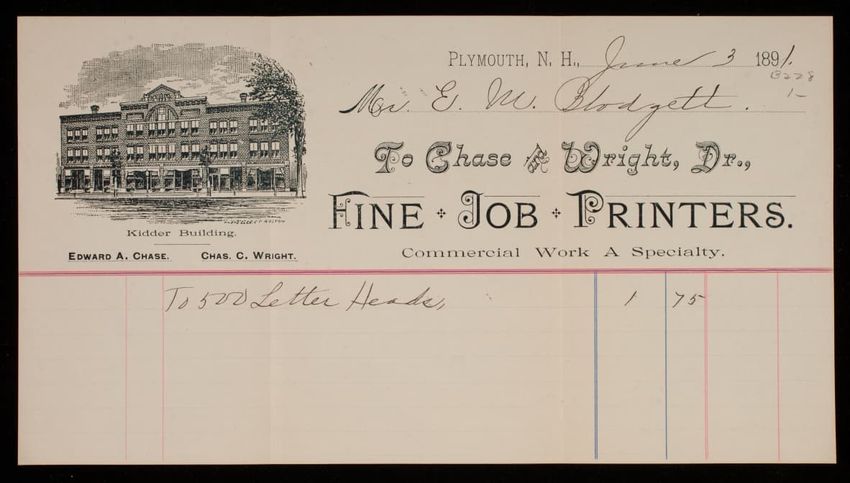 PLYMOUTH, N. H., June 3 1891.
B228
1-
Mr. E. M. Blodgett.
To Chase and Wright, Dr.,
FINE JOB PRINTERS.
Commercial Work A Specialty.
Kidder Building.
EDWARD A. CHASE. CHAS. C. WRIGHT.
To 500 Letter Heads, 1 75